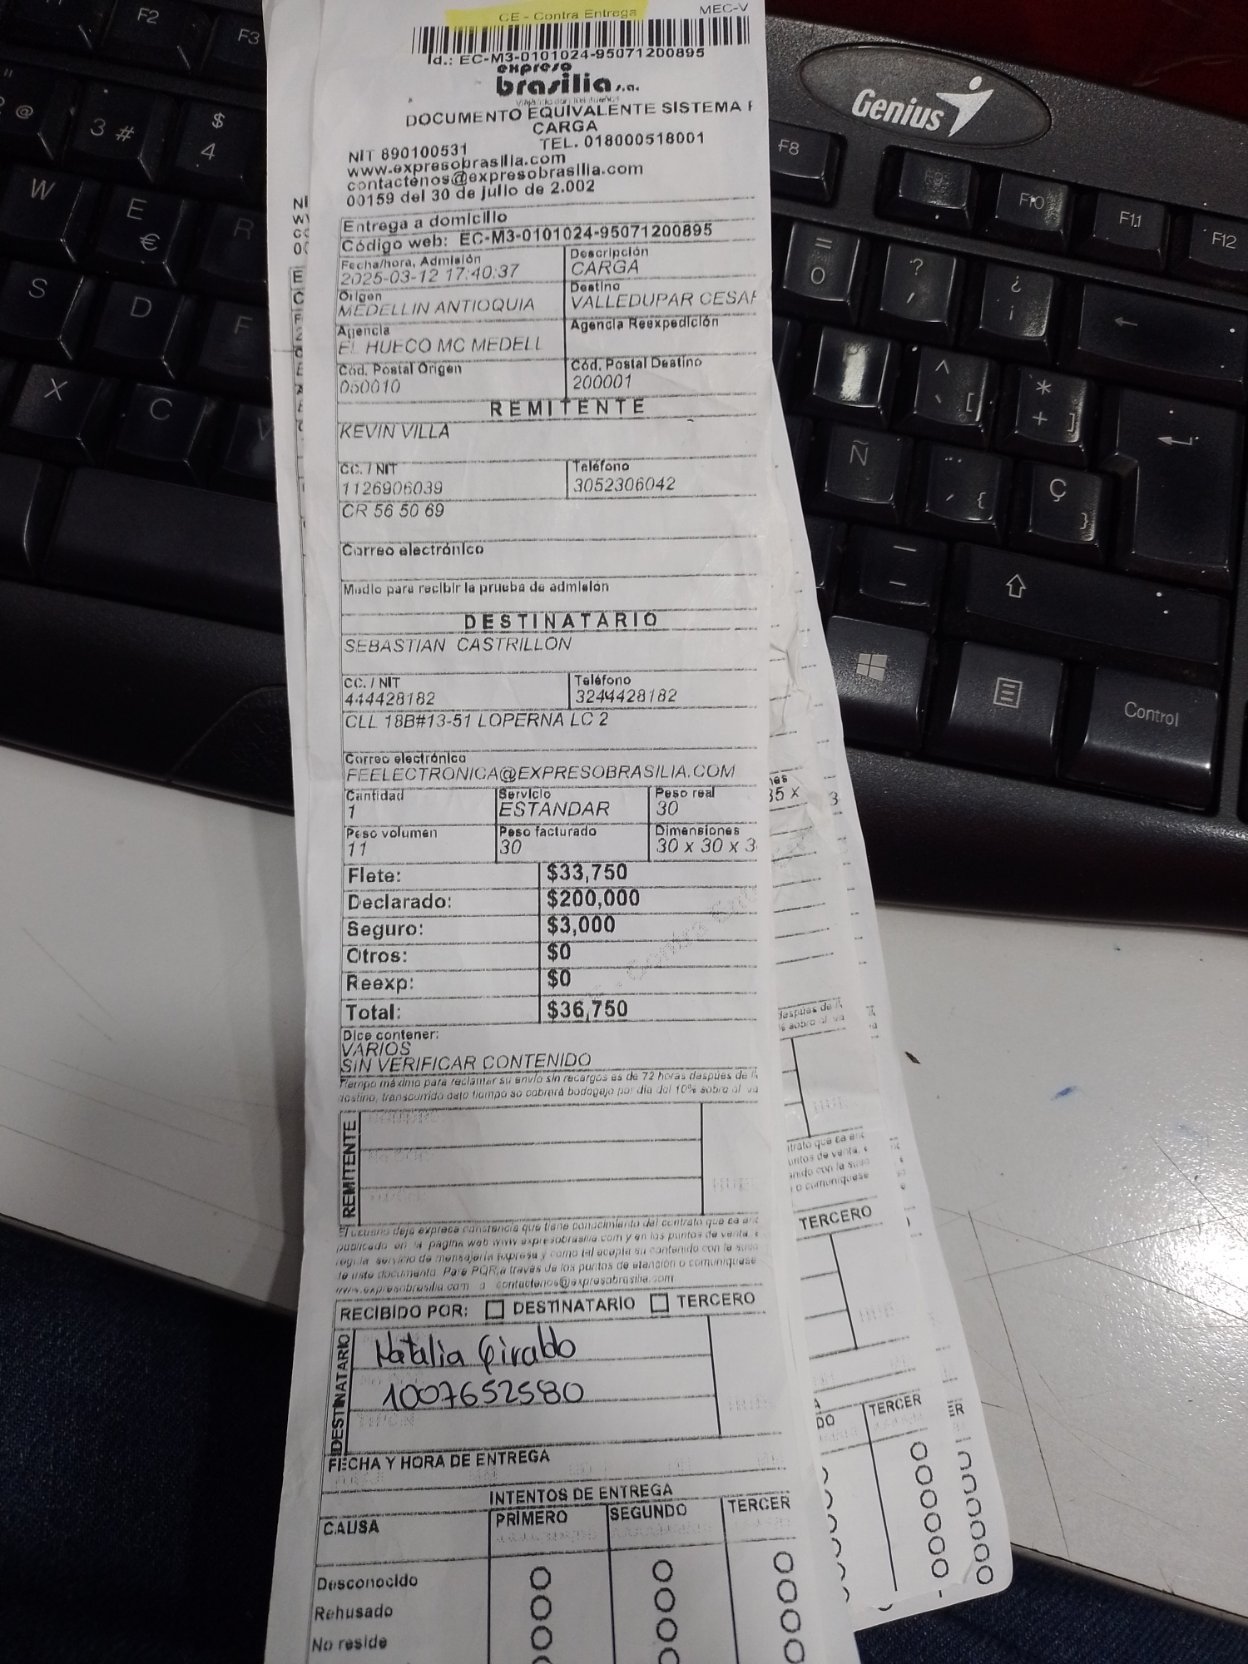 CE - Contra Entrega
MEC-V
Id.: EC-M3-0101024-95071200895
expreso
brasilia s.a.
DOCUMENTO EQUIVALENTE SISTEMA
CARGA
NIT 890100531 TEL. 018000518001
www.expresobrasilia.com
contactenos@expresobrasilia.com
00159 del 30 de julio de 2.002
Entrega a domicilio
Código web: EC-M3-0101024-95071200895
Fecha/hora, Admisión Descripción
2025-03-12 17:40:37 CARGA
Origen Destino
MEDELLIN ANTIOQUIA VALLEDUPAR CESAR
Agencia Agencia Reexpedición
EL HUECO MC MEDELL
Cód. Postal Origen Cód. Postal Destino
050010 200001
REMITENTE
KEVIN VILLA
CC. / NIT Teléfono
1126906039 3052306042
CR 56 50 69
Correo electrónico
Medio para recibir la prueba de admisión
DESTINATARIO
SEBASTIAN CASTRILLON
CC. / NIT Teléfono
444428182 3244428182
CLL 18B#13-51 LOPERNA LC 2
Correo electrónico
FEELECTRONICA@EXPRESOBRASILIA.COM
Cantidad Servicio Peso real
1 ESTANDAR 30
Peso volumen Peso facturado Dimensiones
11 30 30 x 30 x 3
Flete: $33,750
Declarado: $200,000
Seguro: $3,000
Otros: $0
Reexp: $0
Total: $36,750
Dice contener:
VARIOS
SIN VERIFICAR CONTENIDO
Tiempo máximo para reclamar su envío sin recargos es de 72 horas después de
destino, transcurrido este tiempo se cobrará bodegaje por día del 10% sobre el va
REMITENTE
El usuario deja expresa constancia que tiene conocimiento del contrato que se enc
publicado en la página web www.expresobrasilia.com y en los puntos de venta,
regula servicio de mensajería expresa y como tal acepta su contenido con la susc
de este documento. Para PQR,a través de los puntos de atención o comuníquese
www.expresobrasilia.com o contactenos@expresobrasilia.com
RECIBIDO POR: DESTINATARIO TERCERO
DESTINATARIO
Natalia Giraldo
1007652580
FECHA Y HORA DE ENTREGA
INTENTOS DE ENTREGA
CAUSA PRIMERO SEGUNDO TERCER
Desconocido
Rehusado
No reside
35 x 3
TERCERO
TERCER
Genius
F2
F3
F8
F10
F11
F12
W
E
€
R
S
D
F
X
C
V
3 #
$
4
@
=
0
?
¿
¡
Ñ
Ç
*
+
Control